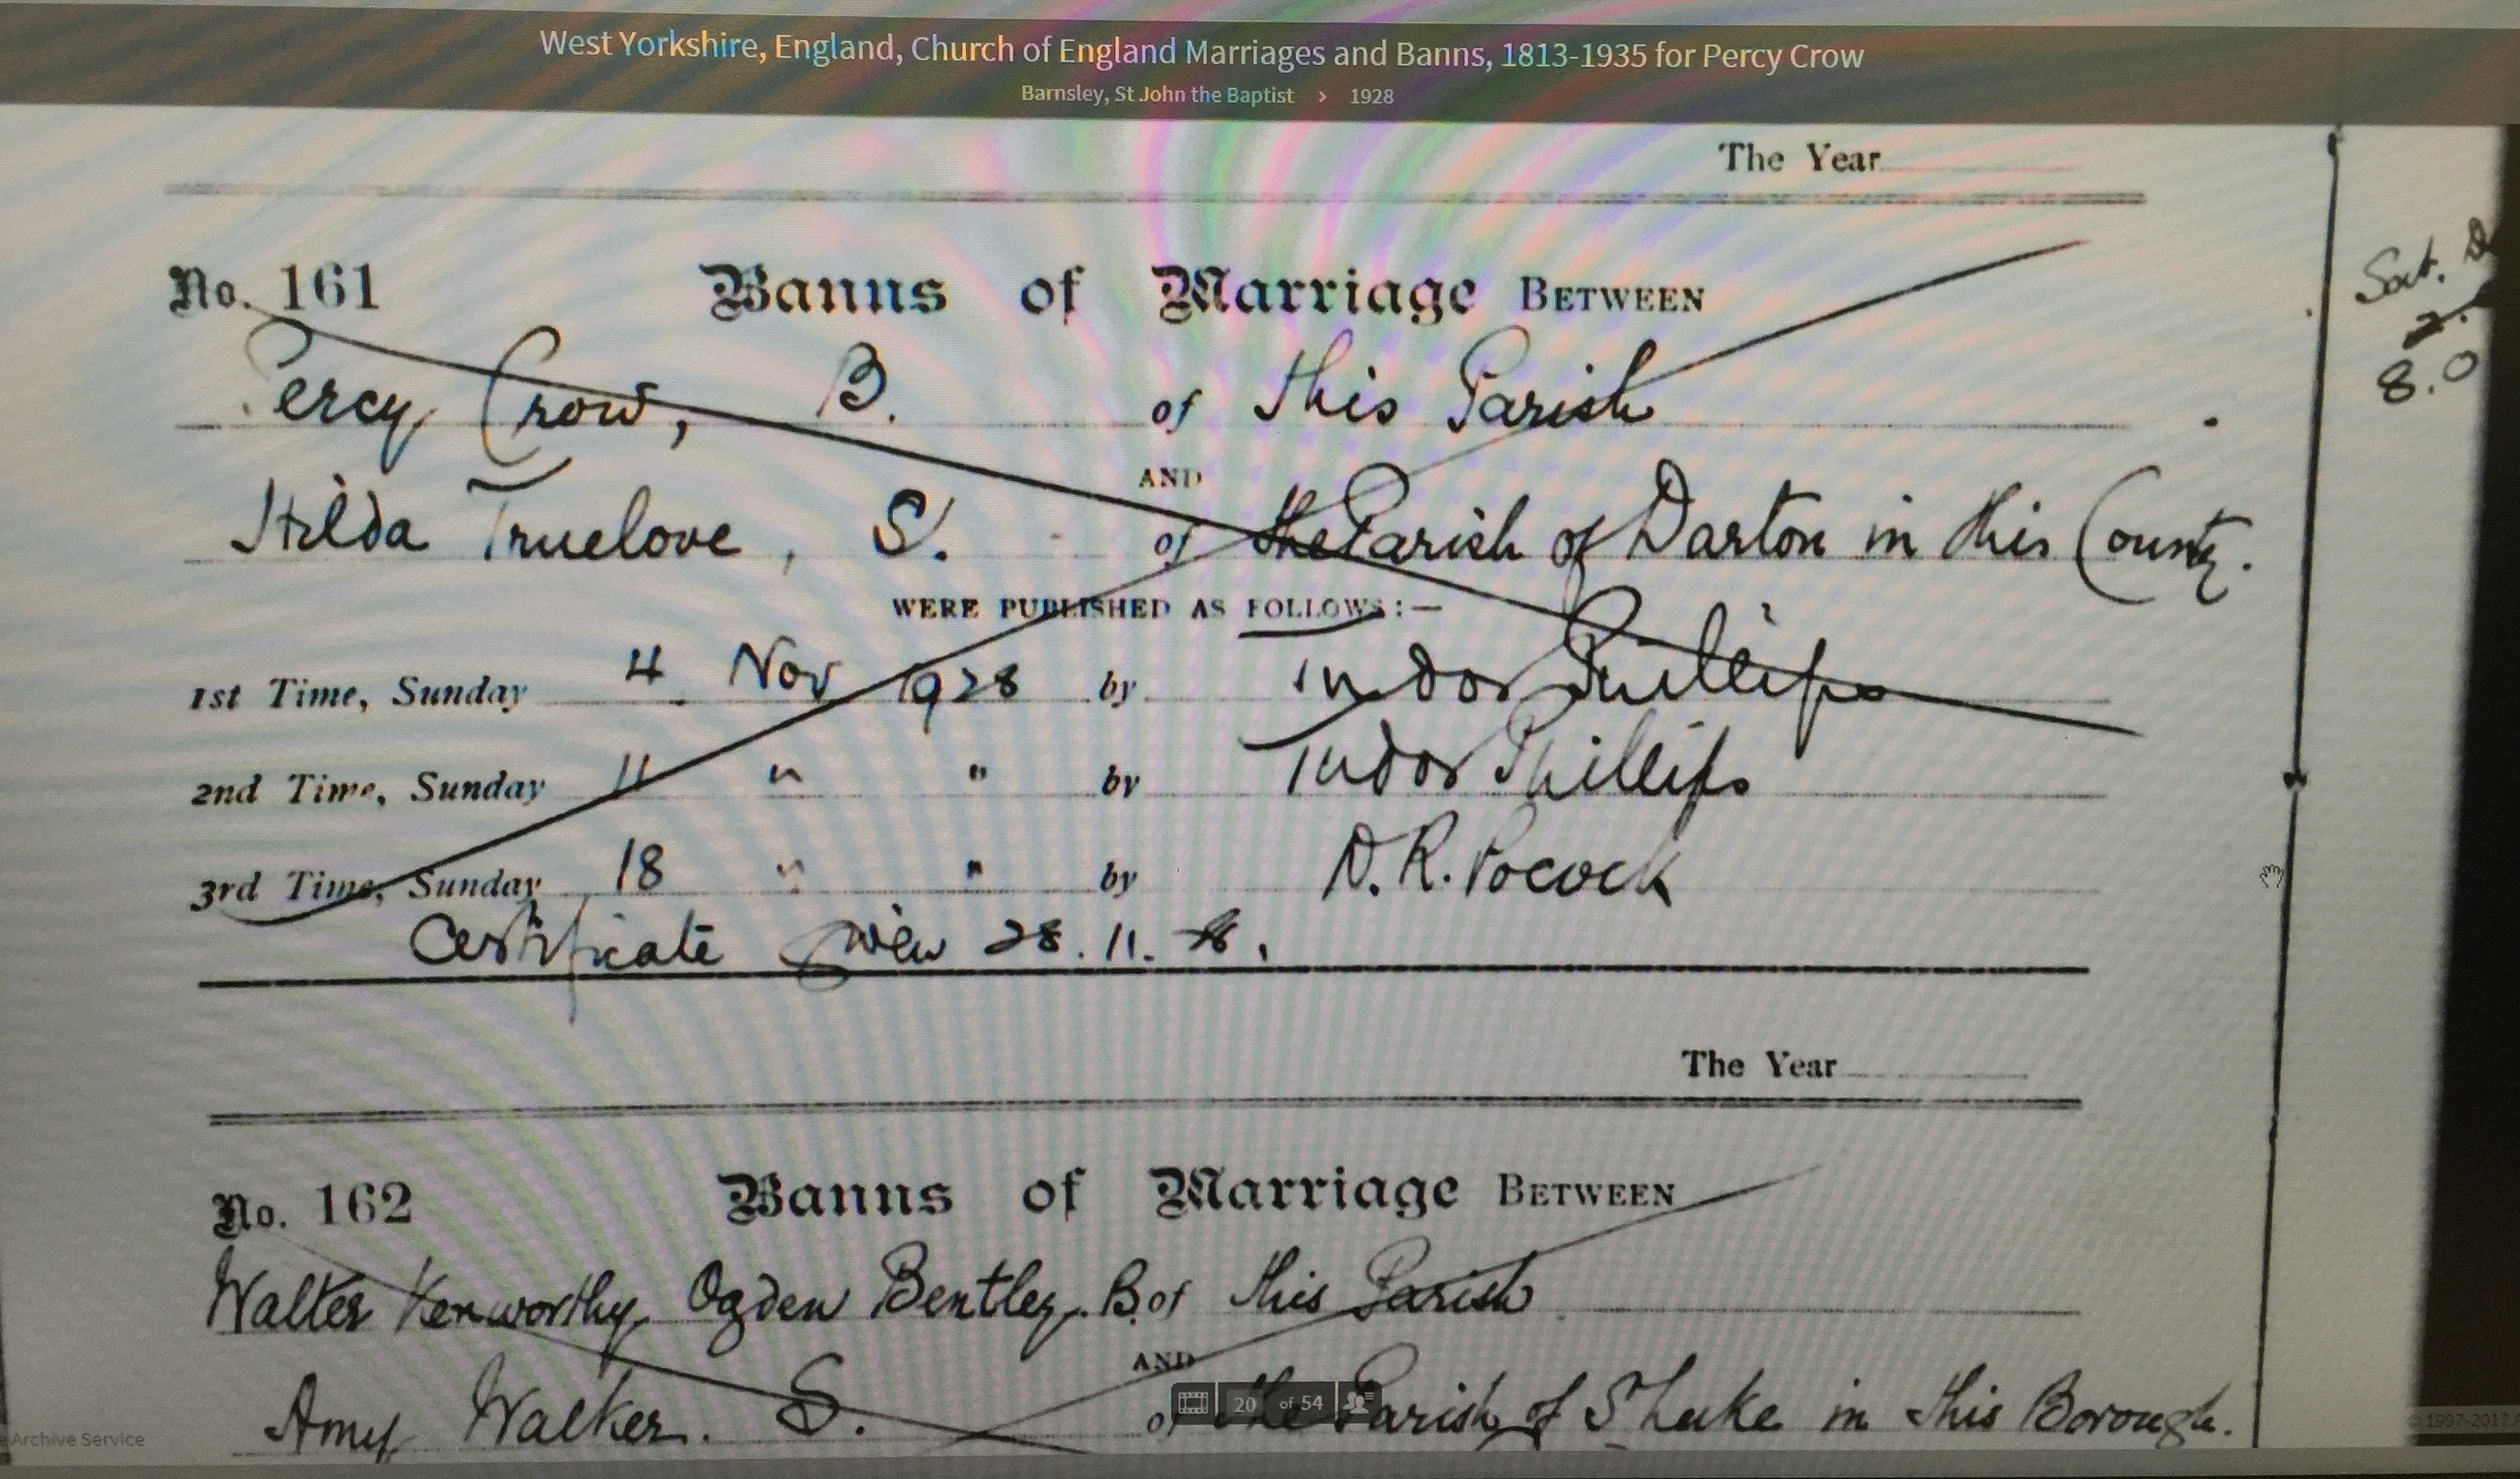 West Yorkshire, England, Church of England Marriages and Banns, 1813-1935 for Percy Crow
Barnsley, St John the Baptist > 1928
The Year
No. 161 Banns of Marriage BETWEEN
Sat.
Percy Crow, B. of this Parish
8.0
AND
Hilda Truelove, S. of the Parish of Darton in this County.
WERE PUBLISHED AS FOLLOWS:—
1st Time, Sunday 4 Nov 1928 by Tudor Phillips
2nd Time, Sunday 11 " " by Tudor Phillips
3rd Time, Sunday 18 " " by D. R. Pocock
Certificate given 28. 11. 28.
The Year
No. 162 Banns of Marriage BETWEEN
Walter Kenworthy Ogden Bentley. B. of this Parish
AND
Amy Walker. S. of the Parish of S Luke in this Borough.
20 of 54
Archive Service
1997-2017